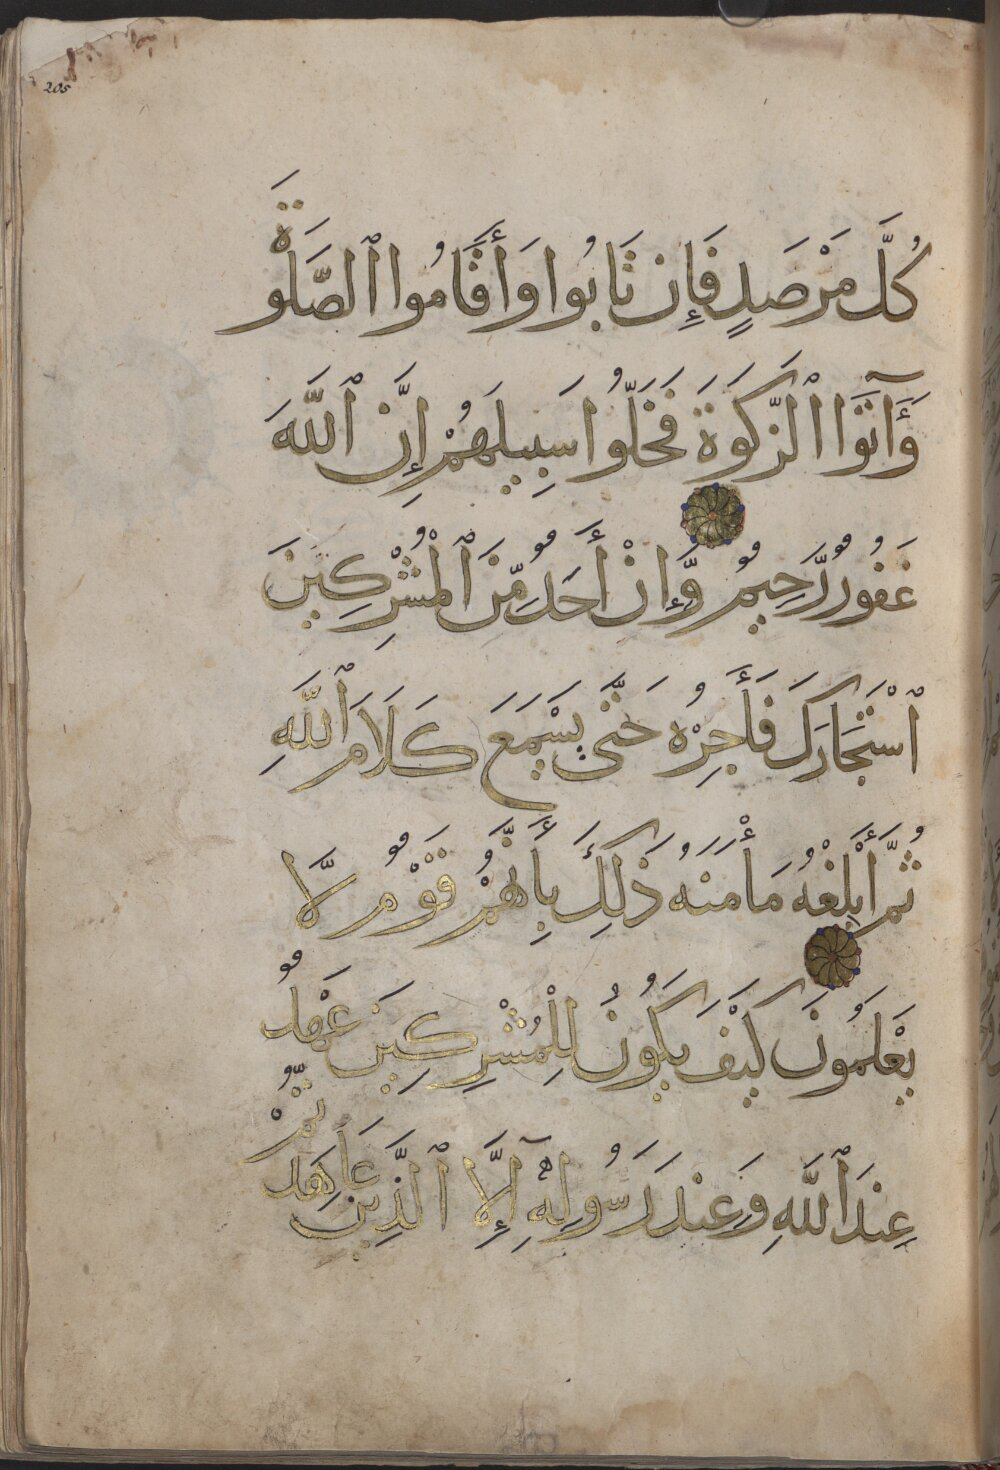 205
كُلَّ مَرْصَدٍ فَإِن تَابُوا وَأَقَامُوا ٱلصَّلَوٰةَ
وَءَاتَوُا ٱلزَّكَوٰةَ فَخَلُّوا سَبِيلَهُمْ إِنَّ ٱللَّهَ
غَفُورٌ رَّحِيمٌ وَإِنْ أَحَدٌ مِّنَ ٱلْمُشْرِكِينَ
ٱسْتَجَارَكَ فَأَجِرْهُ حَتَّى يَسْمَعَ كَلَامَ ٱللَّهِ
ثُمَّ أَبْلِغْهُ مَأْمَنَهُ ذَلِكَ بِأَنَّهُمْ قَوْمٌ لَّا
يَعْلَمُونَ كَيْفَ يَكُونُ لِلْمُشْرِكِينَ عَهْدٌ
عِندَ ٱللَّهِ وَعِندَ رَسُولِهِ إِلَّا ٱلَّذِينَ عَاهَدتُّمْ